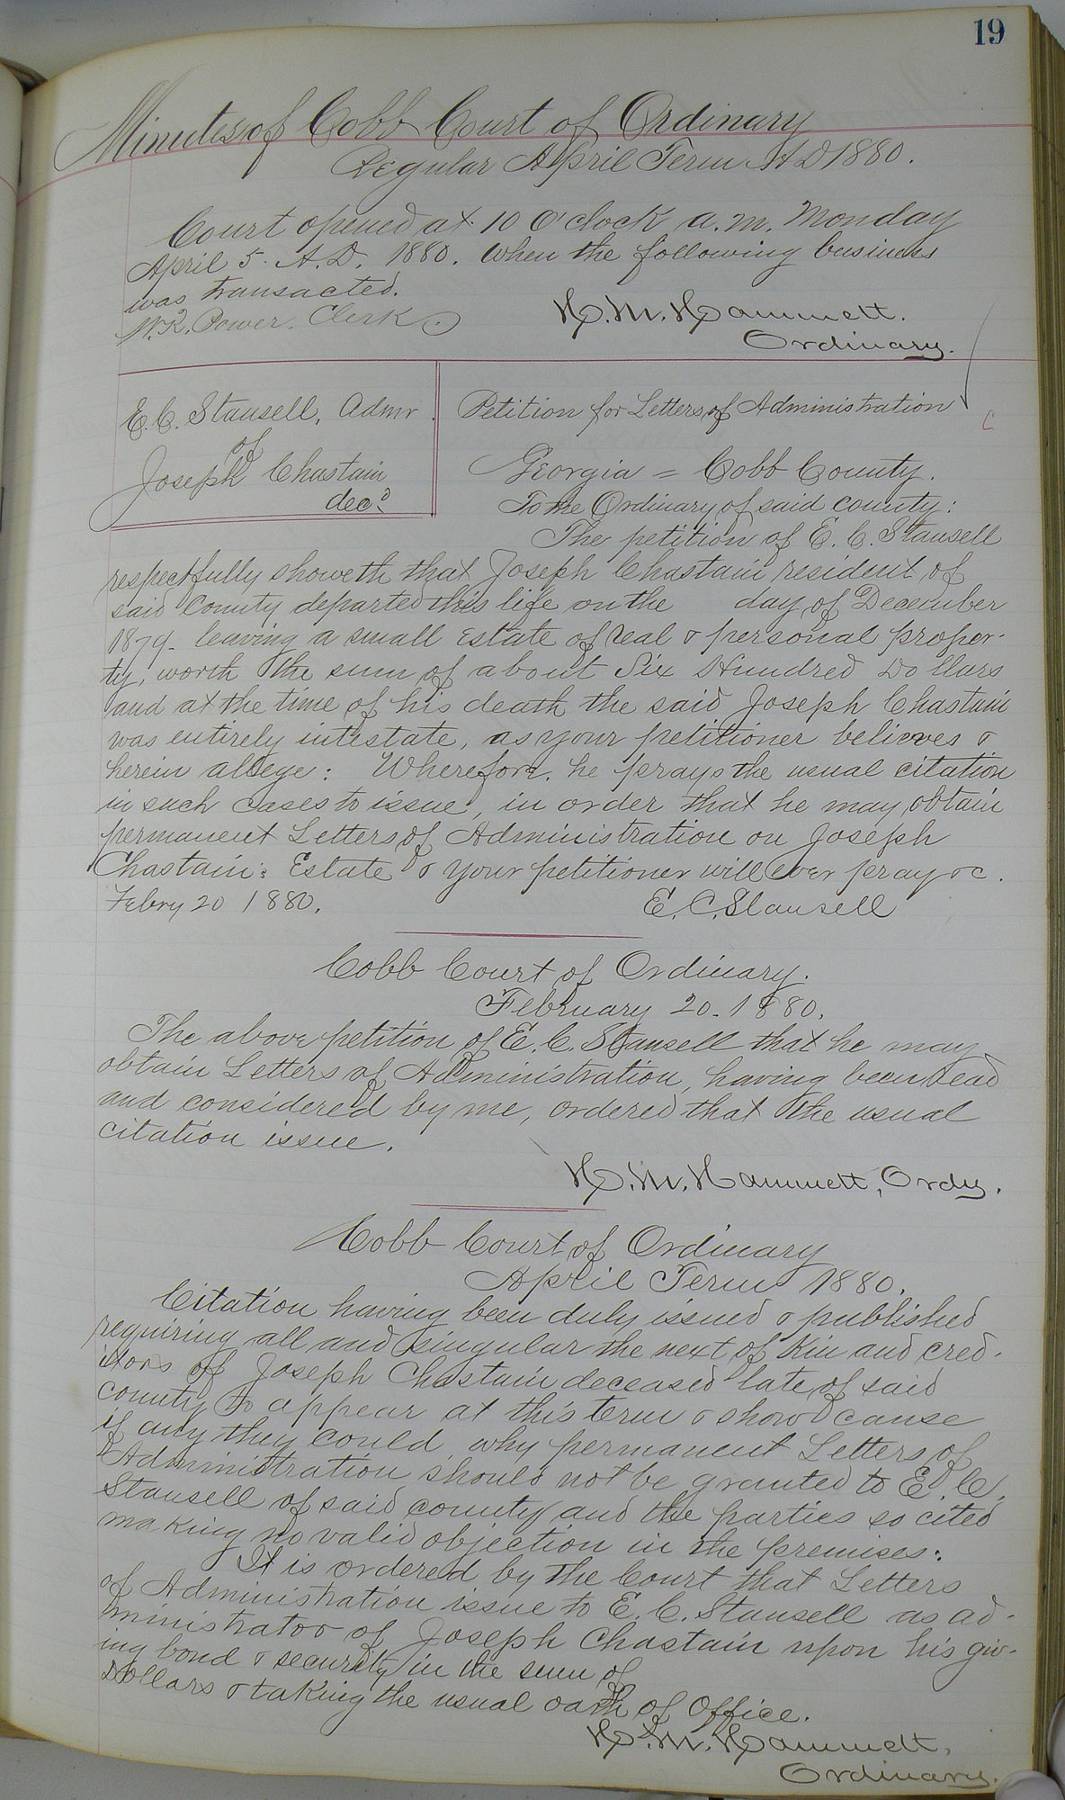 19
Minutes of Cobb Court of Ordinary
Regular April Term A D 1880.
Court opened at 10 O'clock a.m. Monday
April 5. A.D. 1880. When the following business
was transacted.
W.R. Power. Clerk.
H. M. Hammett.
Ordinary.
E. C. Stansell, Admr
of
Joseph Chastain
decd.
Petition for Letters of Administration
Georgia = Cobb County.
To the Ordinary of said county:
The petition of E. C. Stansell
respectfully showeth that Joseph Chastain resident of
said County departed this life on the day of December
1879. leaving a small Estate of real & personal proper-
ty, worth the sum of about Six Hundred Dollars
and at the time of his death the said Joseph Chastain
was entirely intestate, as your petitioner believes &
herein allege: Wherefore, he prays the usual citation
in such cases to issue, in order that he may obtain
permanent Letters of Administration on Joseph
Chastain: Estate & your petitioner will ever pray &c.
Febry 20 1880.
E. C. Stansell
Cobb Court of Ordinary.
February 20. 1880.
The above petition of E. C. Stansell that he may
obtain Letters of Administration, having been read
and considered by me, ordered that the usual
citation issue.
H. M. Hammett, Ordy.
Cobb Court of Ordinary
April Term 1880.
Citation having been duly issued & published
requiring all and singular the next of Kin and cred-
itors of Joseph Chastain deceased late of said
county to appear at this term & show cause
if any they could why permanent Letters of
Administration should not be granted to E. C.
Stansell of said county and the parties so cited
making no valid objection in the premises:
It is ordered by the Court that Letters
of Administration issue to E. C. Stansell as ad-
ministrator of Joseph Chastain upon his giv-
ing bond & security in the sum of
Dollars & taking the usual oath of Office.
H. M. Hammett,
Ordinary.